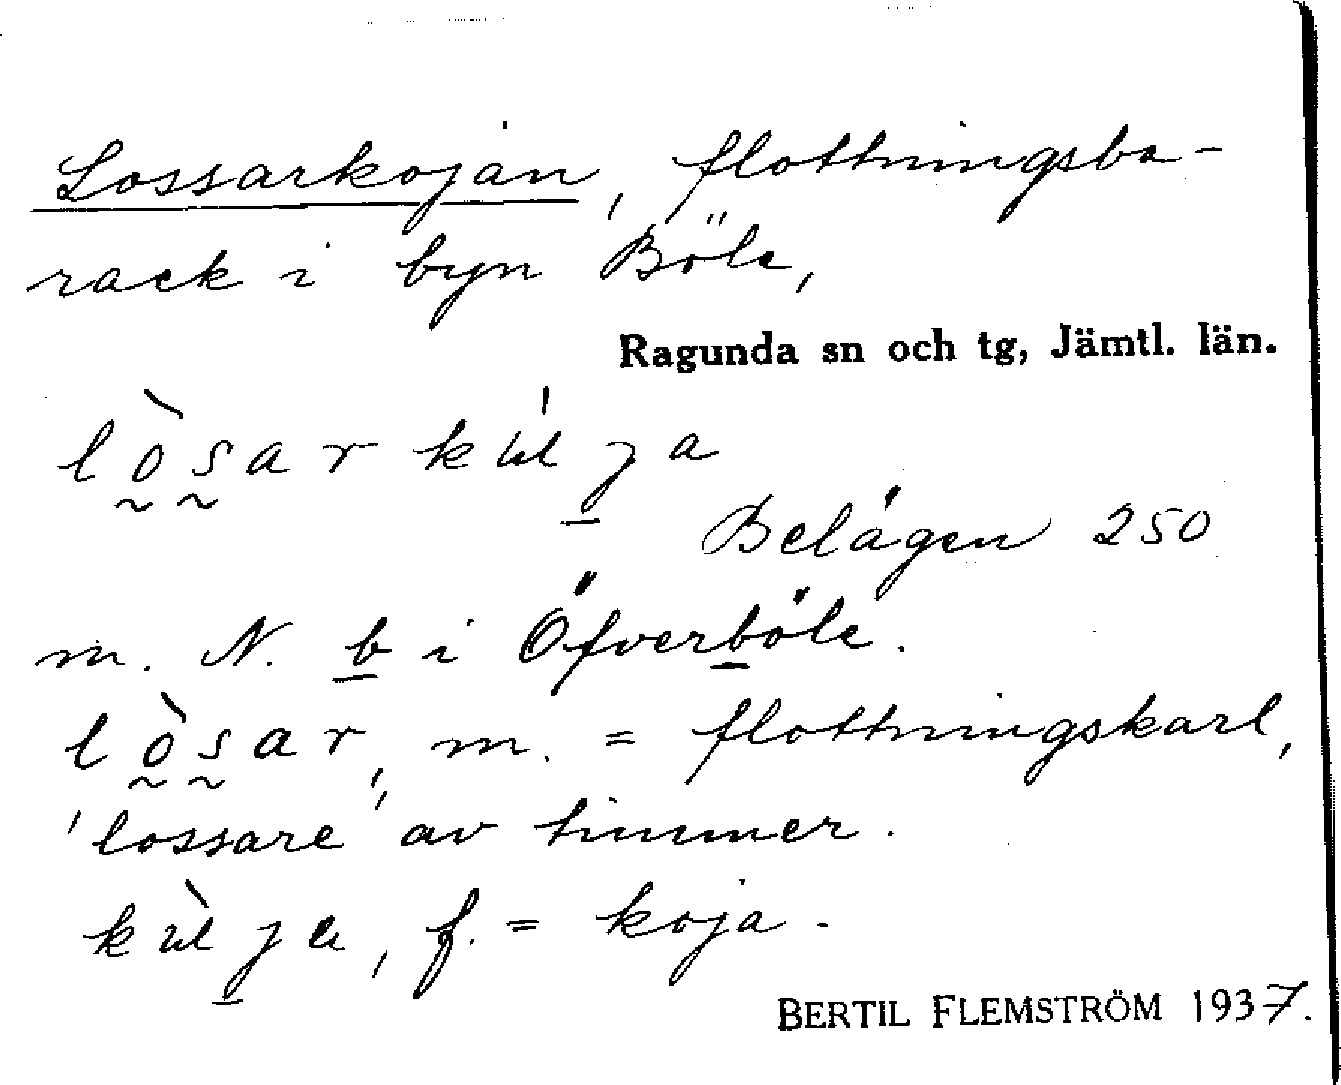 Lossarkojan, flottningsba-
rack i byn Böle,
Ragunda sn och tg, Jämtl. län.
lò̰s̰ar
Belägen 250
m. N. b i Öfverböle.
lò̰s̰ar, m. = flottningskarl,
'lossare' av timmer.
f. = koja.
BERTIL FLEMSTRÖM 1937.